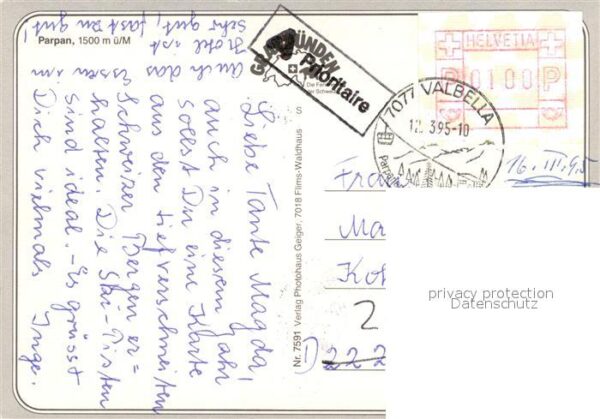 Parpan, 1500 m ü/M
Liebe Tante Magda!
auch in diesem Jahr
sollst Du eine Karte
aus den tiefverschneiten
Schweizer Bergen er=
halten. Die Ski-Pisten
sind ideal. - Es grüsst
Dich vielmals Inge.
auch das Essen im
Hotel ist
sehr gut, fast zu gut!
GRAUBÜNDEN
Prioritaire
HELVETIA
P 0100 P
7077 VALBELLA
12. 3.95-10
16. III. 95
Nr. 7591 Verlag Photohaus Geiger, 7018 Flims-Waldhaus
Frau
Ma
Ko
2
D 222
privacy protection
Datenschutz